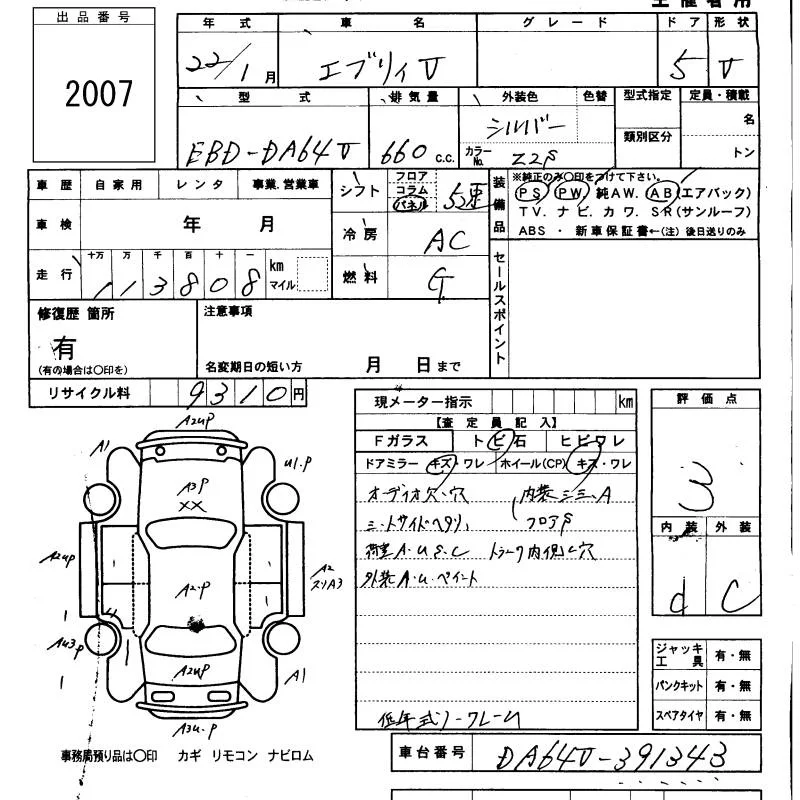 主催者用
出品番号
2007
年式 車名 グレード ドア 形状
22/1月 エブリィV 5 V
型式 排気量 外装色 色替 型式指定 定員・積載
EBD-DA64V 660 c.c. シルバー 類別区分 名
カラーNo. Z2S トン
車歴 自家用 レンタ 事業.営業車
シフト フロア コラム パネル 5速
装備品 ※純正のみ〇印をつけて下さい。
PS PW 純AW. AB(エアバック)
TV. ナビ. カワ. SR(サンルーフ)
ABS ・ 新車保証書←(注) 後日送りのみ
車検 年 月
冷房 AC
走行 十万 万 千 百 十 一
113808 km マイル
燃料 G
セールスポイント
修復歴 箇所
有
(有の場合は〇印を)
注意事項
名変期日の短い方 月 日まで
リサイクル料 9310円
現メーター指示 km
【査定員記入】
Fガラス トビ石 ヒビワレ
ドアミラー キズ・ワレ ホイール(CP) キズ・ワレ
オーディオ欠・穴 内装シミ.A
シートサイドヘタリ. フロアS
荷室A.U.S.C トランク内側ビ穴
外装A.U.ペイント
低年式ノークレーム
評価点
3
内装 外装
d C
ジャッキ工具 有・無
パンクキット 有・無
スペアタイヤ 有・無
車台番号 DA64V-391343
A2UP
A1 U1.P
A3P
XX
A2UP A2.P A2
スリA3
AU3P A2UP A1
A3U.P
事務局預り品は〇印 カギ リモコン ナビロム